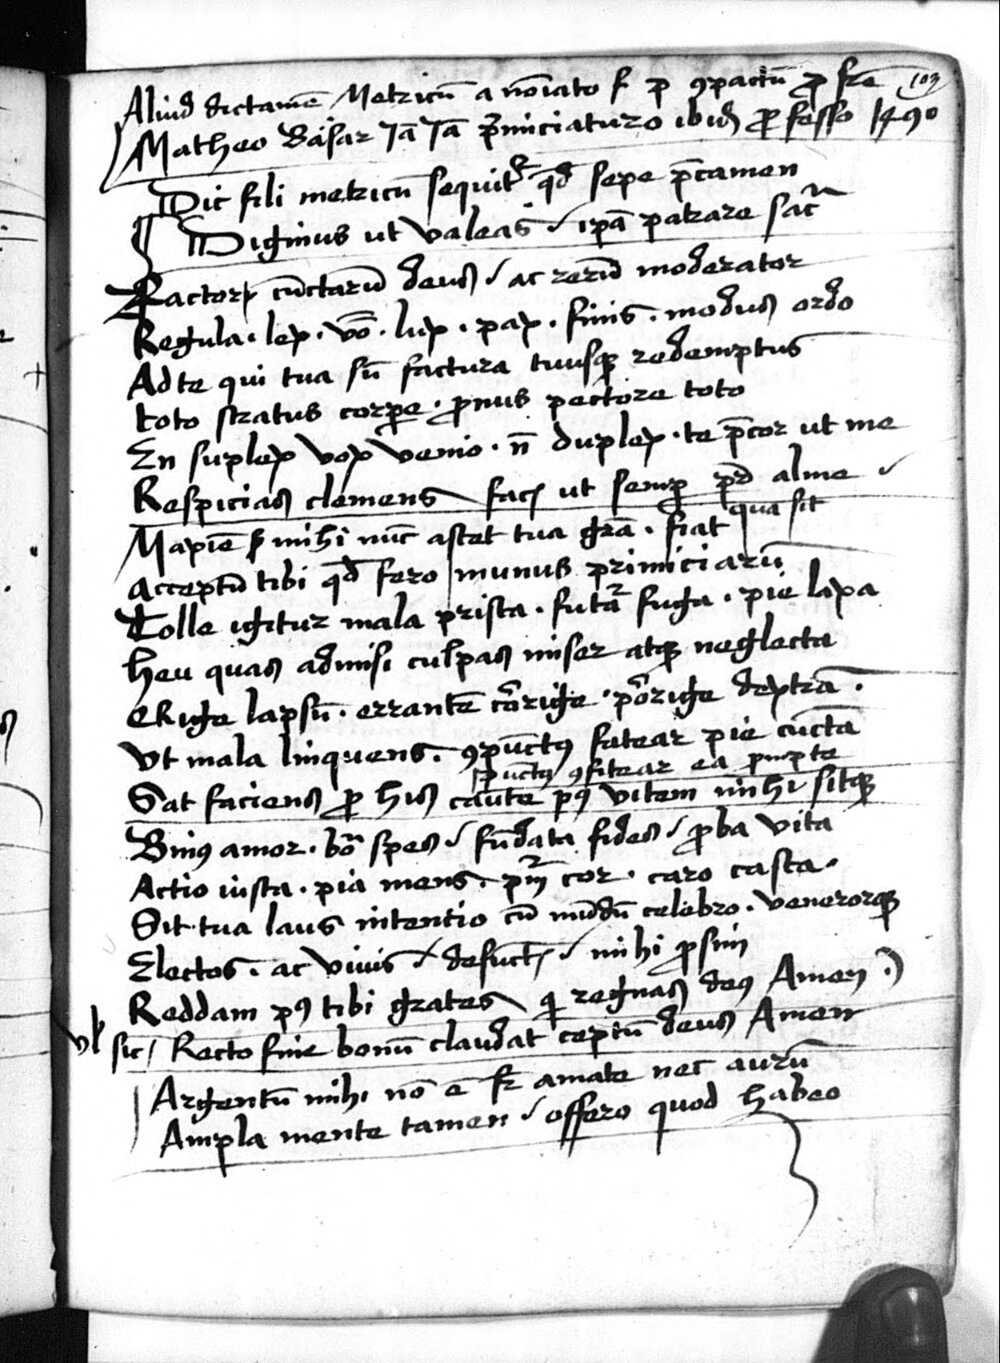 Aliud dictamē Metricū a nōiato f p ꝯpactū ꝓ fr̄e 103
Matheo Basar Jā Jā p̄miciaturo ibid ꝓfesso 1490
Dic fili metricū sequitr̄ qd̄ sepe p̄camen
Diginus ut valeas / ipā patrare sacr̄
Factor cūctarū deus / ac rerū moderator
Regula . lex . vō . lux . pax . finis . modus ordo
Ad te qui tua sū factura tuusqꝫ redemptus
toto stratus corpe . ꝓnus pectore toto
En suplex vox venio . n̄ duplex . te p̄cor ut me
Respicias clemens fac ut semꝑ alme /
qua sit
Maxīe mihi nūc astet tua grā . fiat
Acceptū tibi qd̄ fero munus primiciarū
Tolle igitur mala prista . futūr fuga . pie laxa
heu quas admisi culpas miser atqꝫ neglecta
eRige lapsū . errantē cōrige . pōrige dextrā .
Ut mala linquens . ꝯpūctꝰ fatear pie cūcta
pūctꝰ ꝯfitear ea pmpte
Sat faciens ꝓ his caute pꝰ vitem mihi sitqꝫ
Binꝰ amor . bō spes / fūdata fides / ꝓba vita
Actio iusta . pia mens . pur̄ cor . caro casta .
Sit tua laus intentio cū mūdū celebro . venerorqꝫ
Electos . ac vivis / defūct / mihi ꝓsim
Reddam pꝰ tibi grates qi regnas deꝰ Amen
vl sic / Recto fine bonū claudat ceptū deus Amen
Argentū mihi nō ē fr̄ amate nec aurū
Ampla mente tamen / offero quod habeo